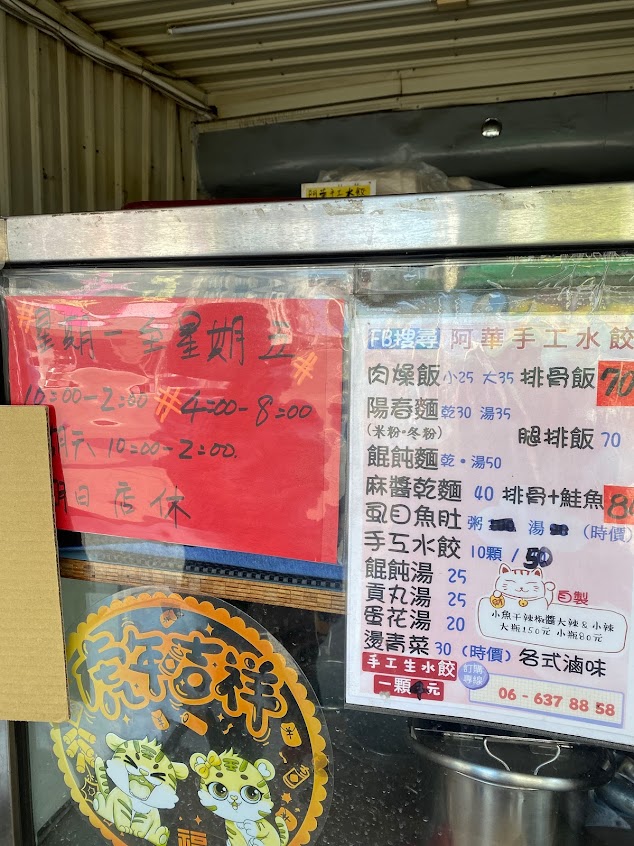 阿華手工水餃
星期一至星期五
10:00-2:00 4:00-8:00
10:00-2:00.
日店休
FB搜尋 阿華手工水餃
肉燥飯 小25 大35 排骨飯 70
陽春麵 乾30 湯35
(米粉•冬粉) 腿排飯 70
餛飩麵 乾•湯50
麻醬乾麵 40 排骨+鮭魚
虱目魚肚 粥 湯 (時價)
手工水餃 10顆 / 50
餛飩湯 25
貢丸湯 25
蛋花湯 20
燙青菜 30 (時價) 各式滷味
自製
小魚干辣椒醬大辣&小辣
大瓶150元 小瓶80元
手工生水餃
一顆 元
訂購
專線
06-6378858
虎年吉祥
福